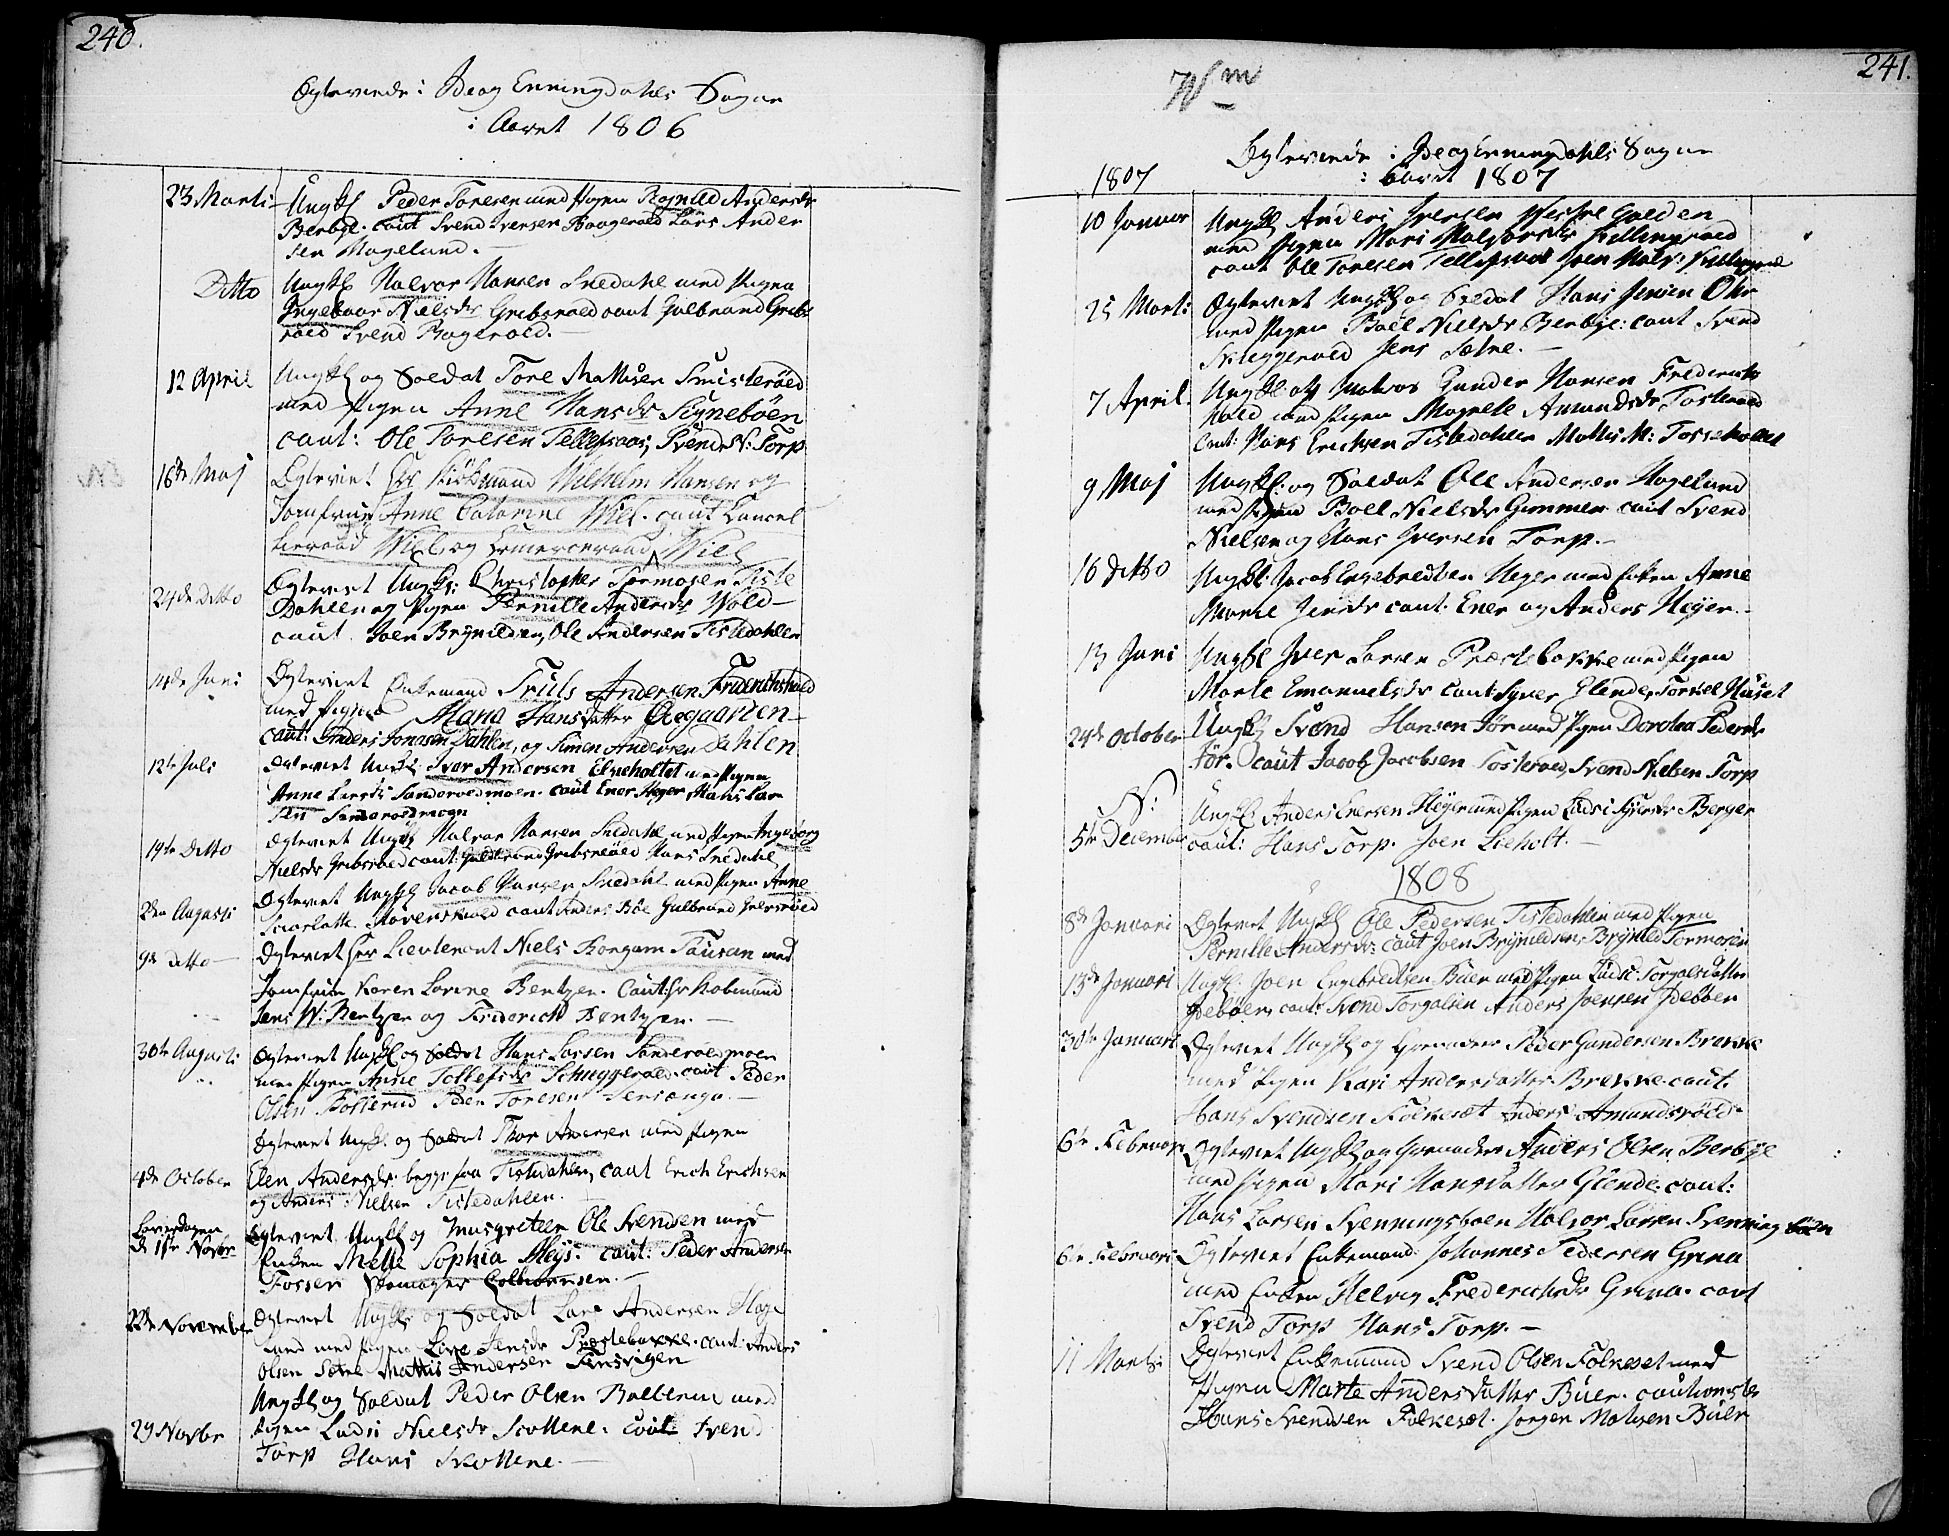 240.
Ægteviede i Ide og Enningdahls Sogne
i Aaret 1806
23 Marti Ungk: Peder Toresen med Pigen Ragnild Andersdr
Berbye. caut Svend Iversen Baagerød Lars Ander
sen Hagelund.
Ditto Ungk: Halvor Hansen Snedahl med Pigen
Ingeboor Nielsdr Grebsrøed caut Gulbrand Grebs
røed Svend Bagerød.
12 April Ungk: og Soldat Tore Mattisen
med Pigen Anne Hansdr Signebøen
caut: Ole Toresen Tellefsaas, Svend N: Torp
16de Maj Egteviet Hr Kiøbmand Wilhelm Hansen og
Jomfrue Anne Catarine Wiel. caut Cancel
lieraad Wiel og Comerceraad Wiel
24de Ditto Egteviet Ungk: Christopher Tormosen Tiste
Dahlen og Pigen Pernille Andersdr Wold
caut. Joen Brynildsen, Ole Andersen Tistedahlen
14de Juni Egteviet Enkemand Truls Andersen Friderichshald
med Pigen Maria Hansdatter Øegaarden
caut: Anders Jonasen Dahlen, og Simen Andersen Dahlen
12te Juli Egteviet Ungk: Ivar Andersen Elneholtet med Pigen
Anne Larsdr Sanderoedmoen. caut Ener Heyer, Hans Lar
sen Sanderoedmoen
19te Ditto Egteviet Ungk: Halvor Hansen Snedahl med Pigen Ingeborg
Nielsdr Grebsroed caut: Guldbrand Grebsrøed Hans Snedahl
2den Augusti Egteviet Ungk: Jacob Hansen Snedahl med Pigen Anne
Scharlotte caut Anders Bøe Gulbrand
9de ditto Egteviet Hr Lieutenant Niels Borgam Tausan med
Jomfrue Karen Lovine Bentzen. Caut: Hr Kobmand
Jens W: Bentzen og Friderich Bentzen.
30te Augusti Egteviet Ungk: og Soldat Hans Larsen Sanderøedmoen
med Pigen Anne Tollefsdr Schuggeroed. caut Peder
Olsen Peder Toresen
Egteviet Ungk: og Soldat Thor Andersen med Pigen
4de October Elen Andersdr begge fra Tistedahlen, caut Erich Erichsen
og Anders Nielsen Tistedahlen.
Løverdagen
d 1ste Novbr Egteviet Ungk: og Musqueteer Ole Svendsen med
Enken Mette Sophia Heys. caut: Peder Andersen
Fossen
22de November Egteviet Ungk: og Soldat Lars Andersen Hage
lund med Pigen Love Jensdr Præstebakke. caut Anders
Olsen Sætre Mattis Andersen
Ungk: og Soldat Peder Olsen med
29 Novbr Pigen Ladsi Nielsdr Scottene. Caut Svend
Torp Hans Skottene.
241.
Wm
Egteviede i Ide og Enningdahls Sogne
i Aaret 1807
1807
10 Januar Ungk: Anders Iversen Westre
med Pigen Mari Halvorsdr
caut Ole Toresen Tellefsaas Joen Halv:
25 Marti Egteviet Ungk: og Soldat Hans Jensen
med Pigen Boel Nielsdr Berbye: caut Svend
Skieggeroed Jens Sætre.
7 April Ungk: og Matros Gunder Hansen Frederichs
hald med Pigen Magrete Amundsdr
Caut: Hans Erichsen Tistedahlen Mattis M:
9 Maj Ungk: og Soldat Ole Andersen Hagelund
med Pigen Boel Nielsdr Gimmer caut Svend
Nielsen og Hans Iversen Torp.
16 ditto Ungk: Jacob Engebredtsen Heyer med Enken Anne
Marie Jensdr caut. Ener og Anders Heyer.
13 Juni Ungk: Iver Larsen Præstebakke med Pigen
Marte Emanuelsdr caut Syver Elende, Torkel
24de October Ungk: Svend Hansen Hør med Pigen Dorotea Pedersdr
Hør. Caut Jacob Jacobsen Svend Nielsen Torp
N:
5te December Ungk: Anders Iversen Heyer med Pigen Ladsi Syversdr Berger
caut: Hans Torp. Joen Lieholt.
1808
8de Januari Egteviet Ungk: Ole Pedersen Tistedahlen med Pigen
Pernille Andersdr: caut Joen Brynildsen, Brynild Tormosen
13de Januari Ungk: Joen Engebredtsen Buer med Pigen Ladsi Torgalsdatter
Idebøen, caut: Svend Torgalsen Anders Joensen Idebøen
30te Januari Egteviet Ungk: og Grenadeer Peder Gundersen Brække
med Pigen Kari Andersdatter Brekke. caut.
Hans Svendsen Folkesæt Anders Amundsrøed.
6te Februari Egteviet Ungk: og Grenadeer Anders Olsen Berbye
med Pigen Mari Hansdatter Glende: caut:
Hans Larsen Svenningsbøen Halvor Larsen Svenningsbøen
6te Februari Egteviet Enkemand Johannes Pedersen Grena
med Enken Helvig Frederichsdr Grena. caut
Svend Torp Hans Torp.
11 Marti Egteviet Enkemand Svend Olsen Folkeset med
Pigen Marte Andersdatter Buer. cautionister
Hans Svendsen Folkeset. Jørgen Madsen Buer